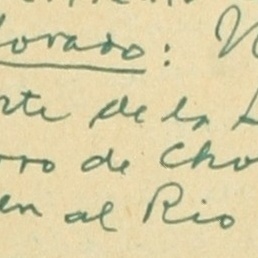 lorado: N
rte de la L
rro de Cho
en al Rio